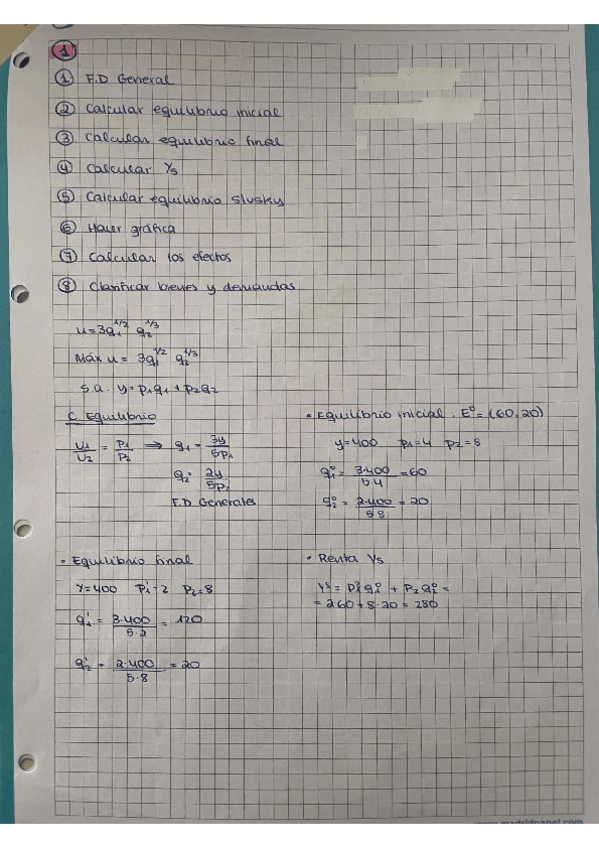 1
① F.D General
② Calcular equilibrio inicial
③ Calcular equilibrio final
④ Calcular Ys
⑤ Calcular equilibrio Slusky
⑥ Hacer gráfica
⑦ Calcular los efectos
⑧ Clasificar bienes y demandas
u = 3q₁^1/2 q₂^1/3
Máx u = 3q₁^1/2 q₂^1/3
s.a: y = p₁q₁ + p₂q₂
C. Equilibrio
U₁/U₂ = P₁/P₂ ⟹ q₁ = 3y/5p₁
q₂ = 2y/5p₂
F.D Generales
• Equilibrio inicial: E⁰ = (60,20)
y=400 p₁=4 p₂=8
q₁⁰ = 3·400/5·4 = 60
q₂⁰ = 2·400/5·8 = 20
• Equilibrio final
Y=400 P₁'=2 P₂=8
q₁' = 3·400/5·2 = 120
q₂' = 2·400/5·8 = 20
• Renta Ys
Ys = P₁'q₁⁰ + P₂q₂⁰ =
= 2·60 + 8·20 = 280